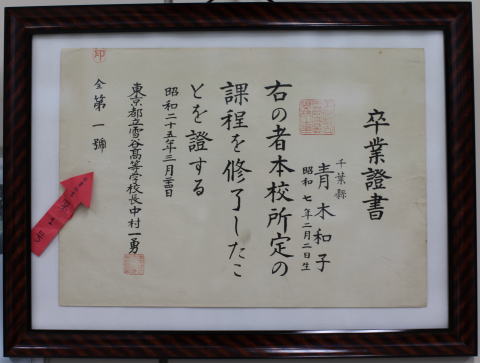 卒業證書
千葉縣
青木和子
昭和七年二月二日生
右の者本校所定の
課程を修了したこ
とを證する
昭和二十五年三月
東京都立雪谷高等学校長中村一勇
全第一號
印